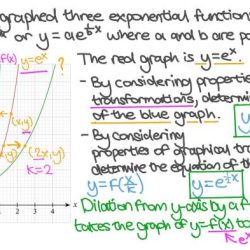 graphed three exponential function
or y = ae^½x where a and b are po
=f(x) y=e^x ?
The real graph is y=e^x.
- By considering properties
transformations, determin
of the blue graph.
(x,y) (2x,y)
k=2
- By considering
properties of graphical tran
determine the equation of th
y=f(x/2) y=e^½x
1 2 3 4 x
Dilation from y-axis by a f
takes the graph of y=f(x) to
e^x